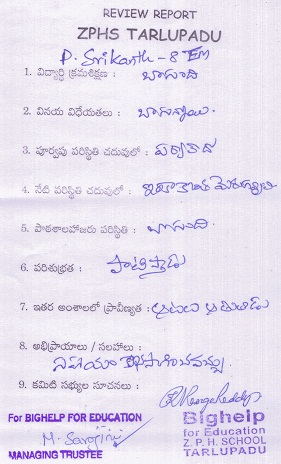 REVIEW REPORT
ZPHS TARLUPADU
P. Srikanth - 8 EM
1. విద్యార్థి క్రమశిక్షణ : బాగుంది
2. వినయ విధేయతలు : బాగున్నాయి.
3. పూర్వపు పరిస్థితి చదువులో :
4. నేటి పరిస్థితి చదువులో : ఇంకా
5. పాఠశాలహాజరు పరిస్థితి : బాగుంది.
6. పరిశుభ్రత : పాటిస్తాడు
7. ఇతర అంశాలలో ప్రావీణ్యత : ఆటలు ఆడుతాడు
8. అభిప్రాయాలు / సలహాలు :
సహాయం
9. కమిటి సభ్యుల సూచనలు :
For BIGHELP FOR EDUCATION
MANAGING TRUSTEE
Bighelp
for Education
Z. P. H. SCHOOL
TARLUPADU